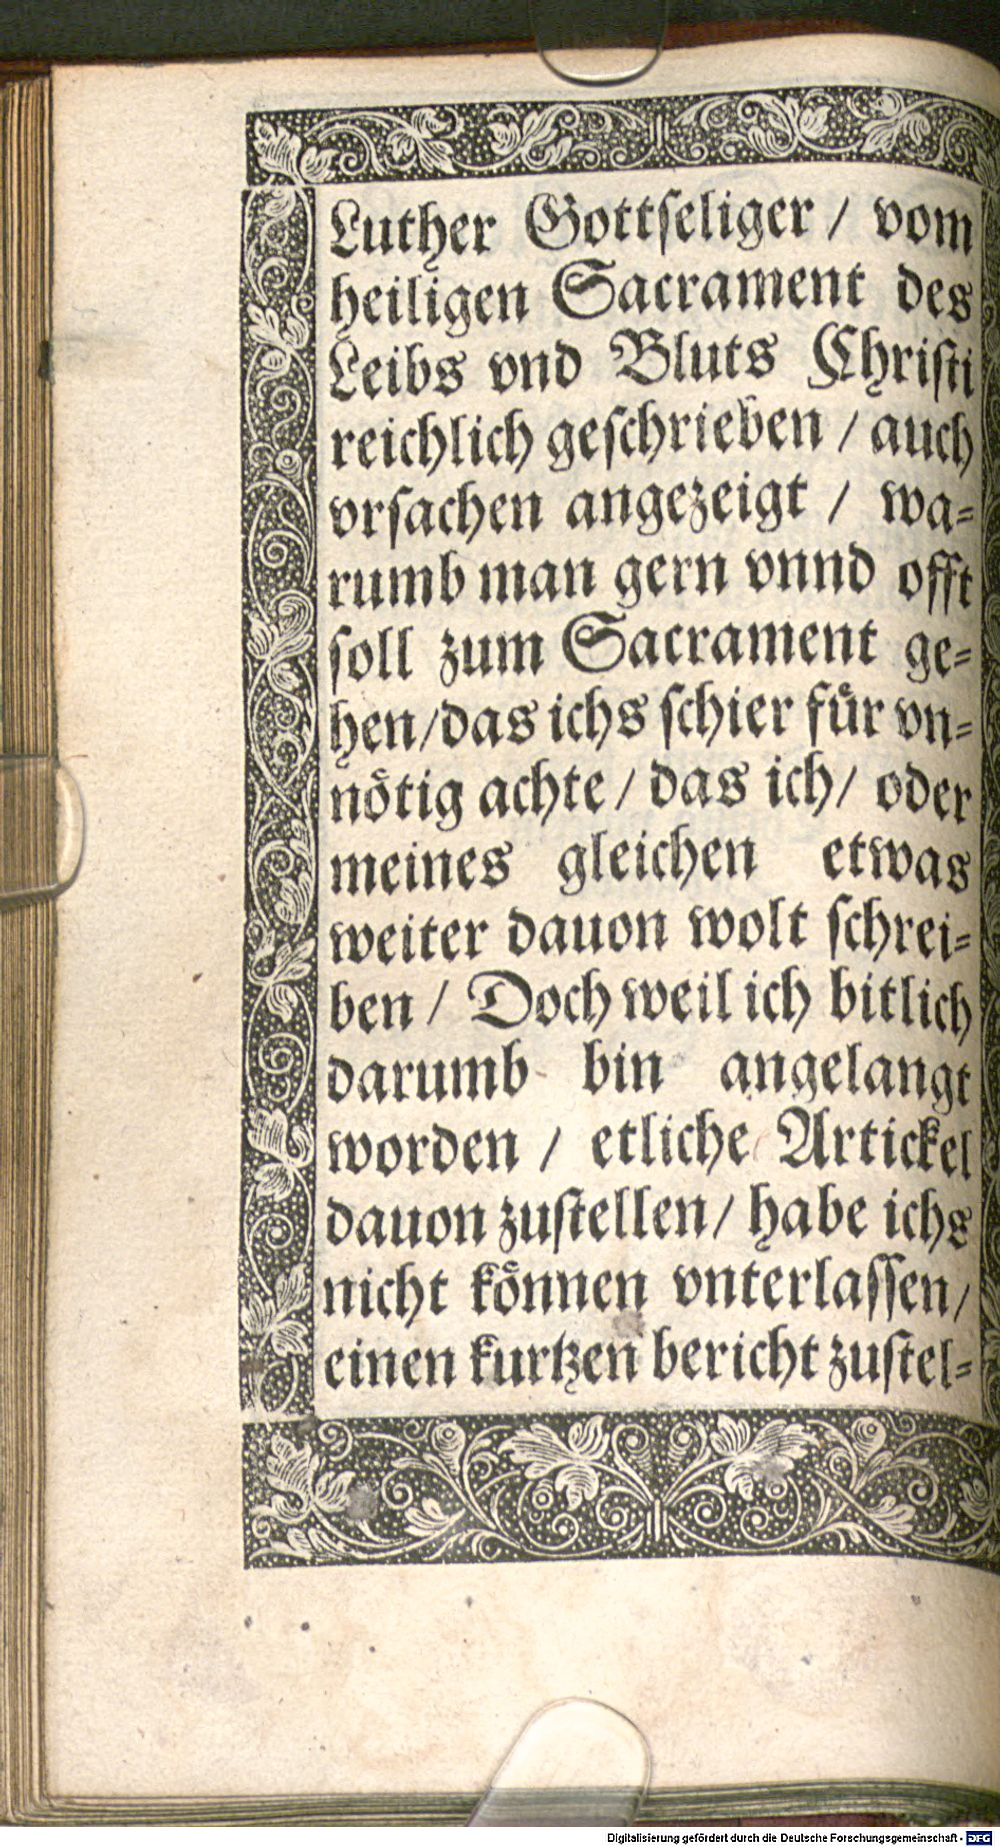 Luther Gottſeliger / vom
heiligen Sacrament des
Leibs vnd Bluts Chriſti
reichlich geſchrieben / auch
vrſachen angezeigt / wa⸗
rumb man gern vnnd offt
ſoll zum Sacrament ge⸗
hen/das ichs ſchier fuͤr vn⸗
noͤtig achte / das ich/ oder
meines gleichen etwas
weiter dauon wolt ſchrei⸗
ben / Doch weil ich bitlich
darumb bin angelangt
worden / etliche Artickel
dauon zuſtellen/ habe ichs
nicht koͤnnen vnterlaſſen/
einen kurtzen bericht zuſtel⸗
Digitalisierung gefördert durch die Deutsche Forschungsgemeinschaft - DFG